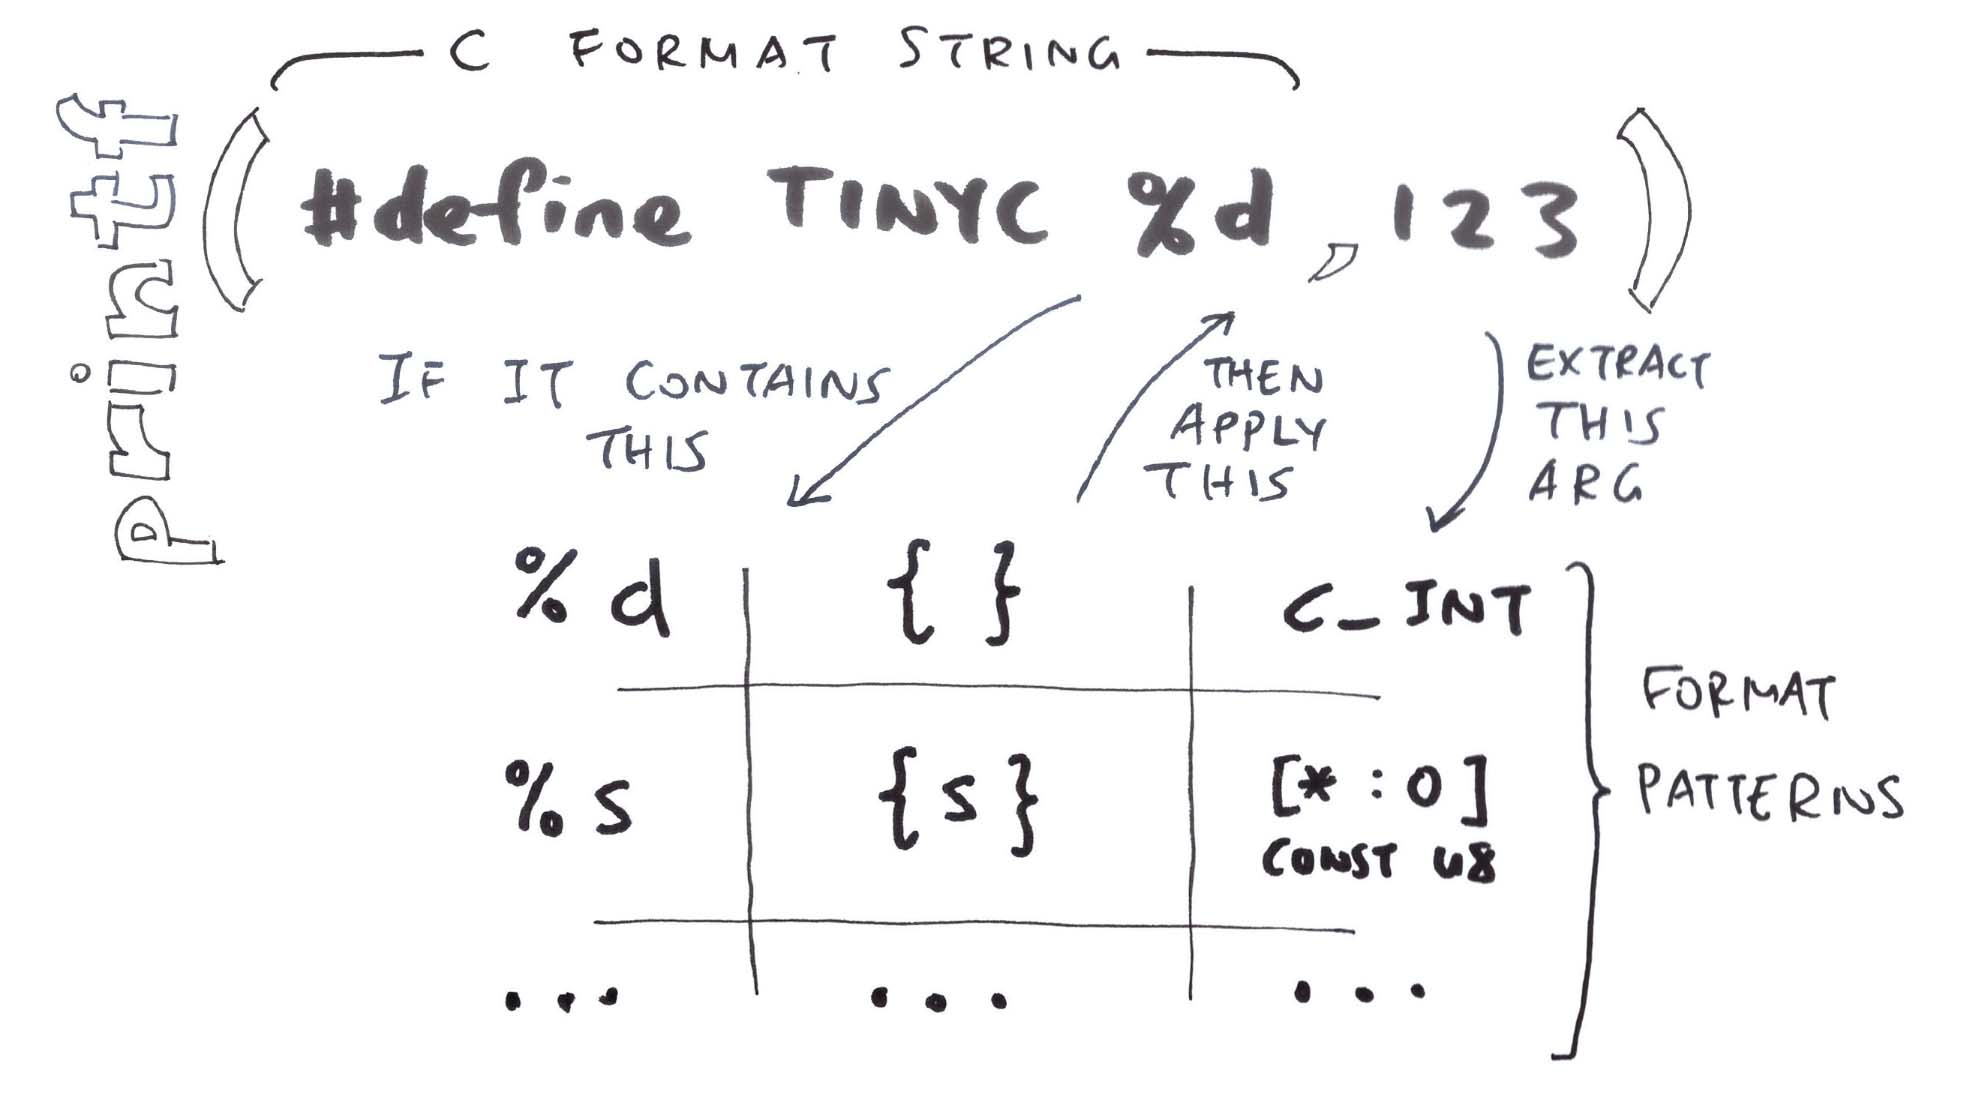 C FORMAT STRING
printf
( #define TINYC %d , 123 )
IF IT CONTAINS
THIS
THEN
APPLY
THIS
EXTRACT
THIS
ARG
%d { } C_INT
%s {s} [*:0]
CONST u8
... ... ...
FORMAT
PATTERNS